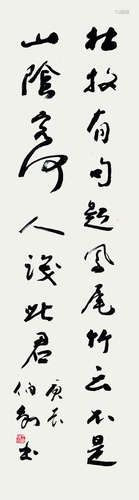 杜牧有句题凤尾竹云不是
山阴客何人识此君
庚辰
伯钊书